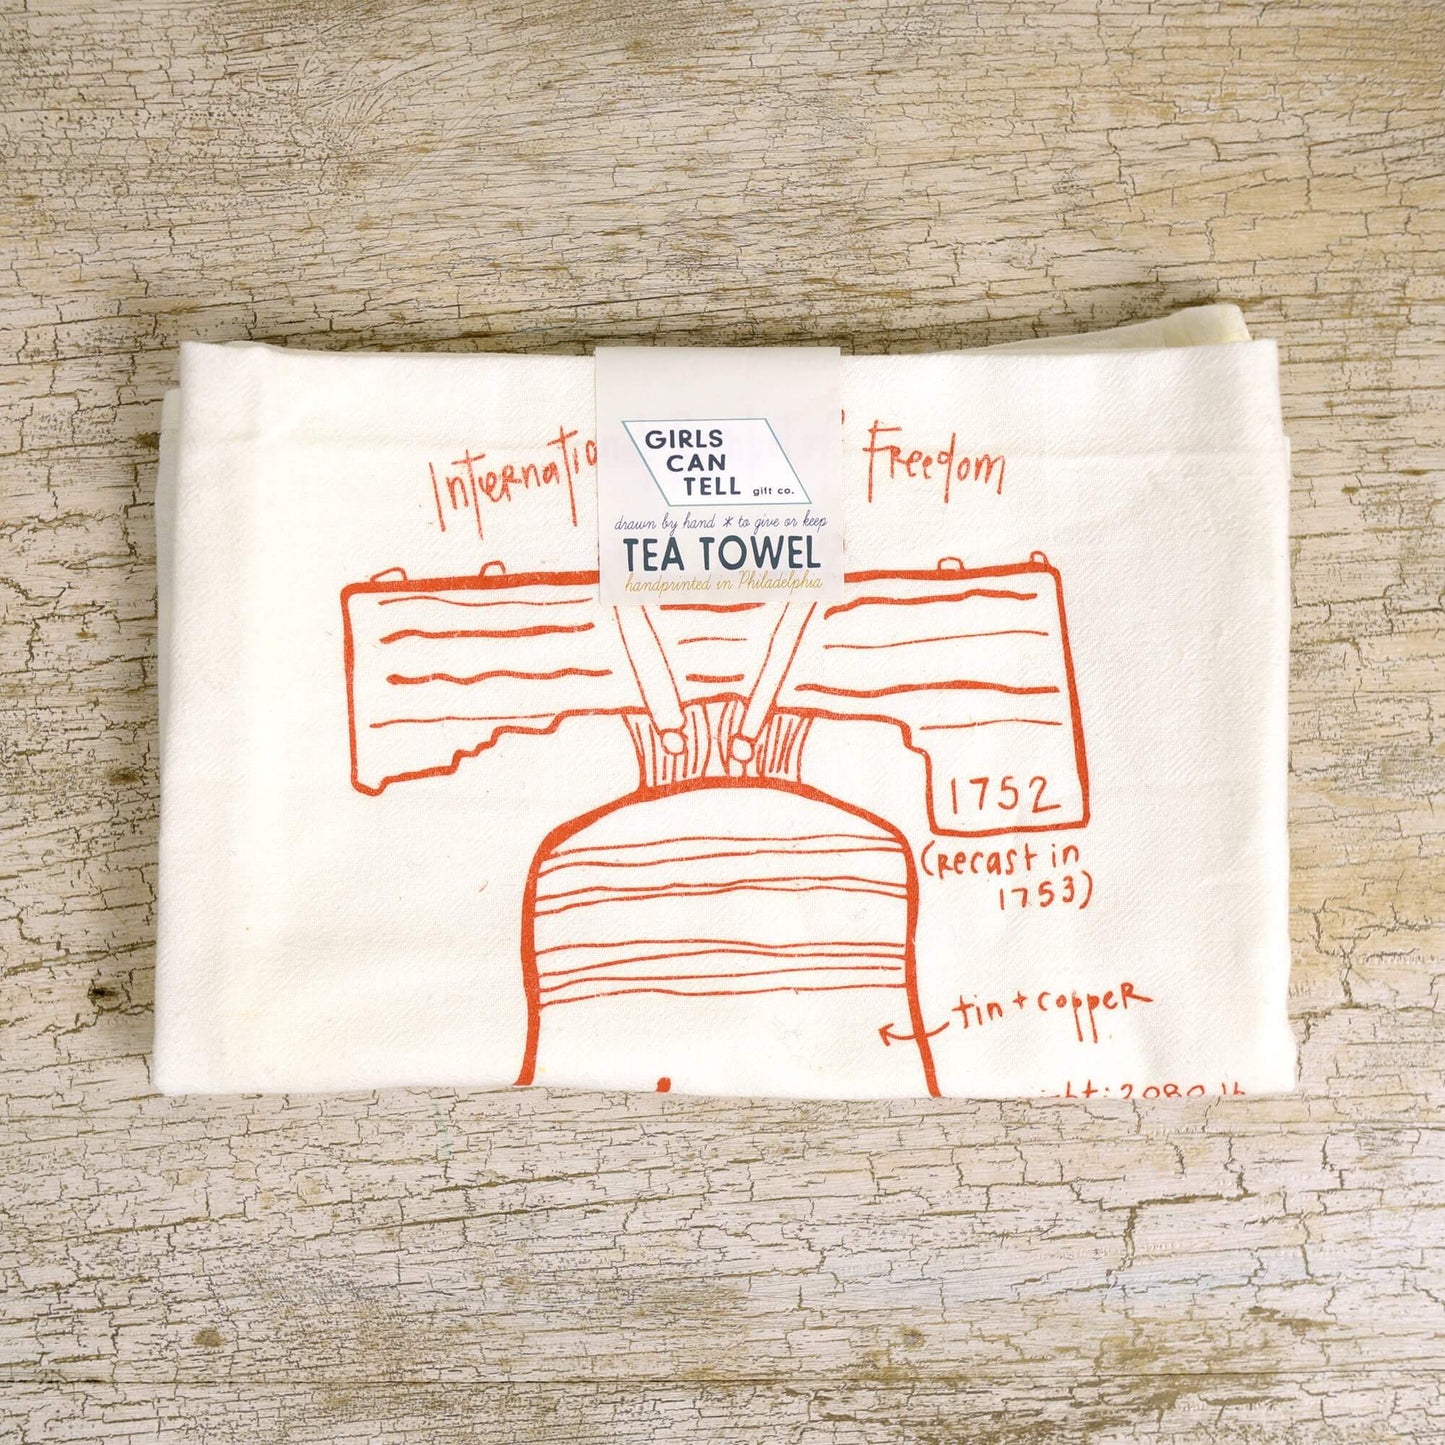 GIRLS
CAN
TELL gift co.
drawn by hand * to give or keep
TEA TOWEL
handprinted in Philadelphia
Freedom
1752
(recast in
1753)
tin + copper
2080 lb